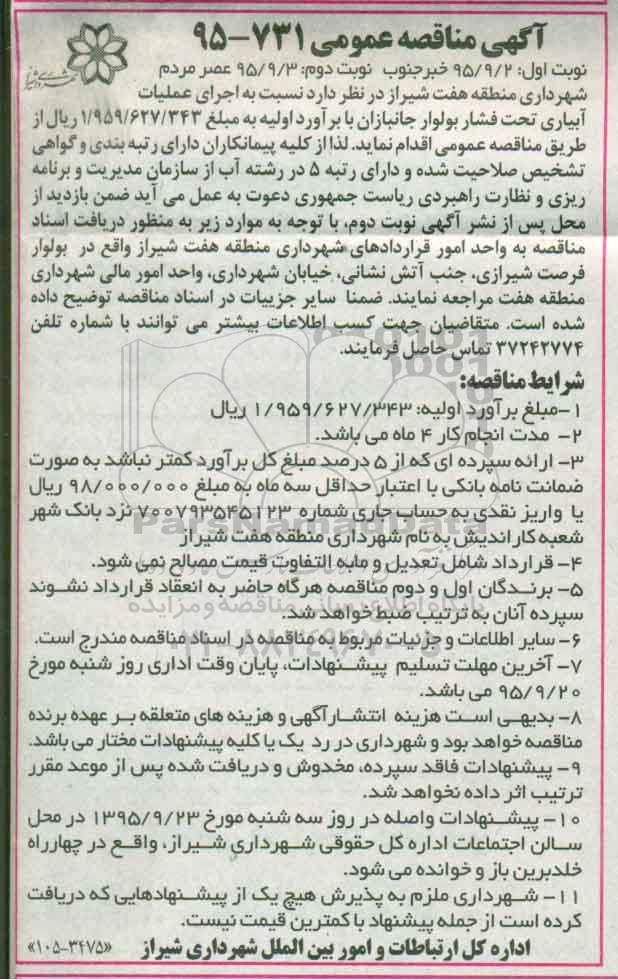 آگهی مناقصه عمومی ۷۳۱-۹۵
شهرداری شیراز
نوبت اول: ۹۵/۹/۲ خبرجنوب نوبت دوم: ۹۵/۹/۳ عصر مردم
شهرداری منطقه هفت شیراز در نظر دارد نسبت به اجرای عملیات
آبیاری تحت فشار بولوار جانبازان با برآورد اولیه به مبلغ ۱/۹۵۹/۶۲۷/۳۴۳ ریال از
طریق مناقصه عمومی اقدام نماید. لذا از کلیه پیمانکاران دارای رتبه بندی و گواهی
تشخیص صلاحیت شده و دارای رتبه ۵ در رشته آب از سازمان مدیریت و برنامه
ریزی و نظارت راهبردی ریاست جمهوری دعوت به عمل می آید ضمن بازدید از
محل پس از نشر آگهی نوبت دوم، با توجه به موارد زیر به منظور دریافت اسناد
مناقصه به واحد امور قراردادهای شهرداری منطقه هفت شیراز واقع در بولوار
فرصت شیرازی، جنب آتش نشانی، خیابان شهرداری، واحد امور مالی شهرداری
منطقه هفت مراجعه نمایند. ضمنا سایر جزییات در اسناد مناقصه توضیح داده
شده است. متقاضیان جهت کسب اطلاعات بیشتر می توانند با شماره تلفن
۳۷۲۴۲۷۷۴ تماس حاصل فرمایند.
شرایط مناقصه:
۱-مبلغ برآورد اولیه: ۱/۹۵۹/۶۲۷/۳۴۳ ریال
۲- مدت انجام کار ۴ ماه می باشد.
۳- ارائه سپرده ای که از ۵ درصد مبلغ کل برآورد کمتر نباشد به صورت
ضمانت نامه بانکی با اعتبار حداقل سه ماه به مبلغ ۹۸/۰۰۰/۰۰۰ ریال
یا واریز نقدی به حساب جاری شماره ۷۰۰۷۹۳۵۴۵۱۲۳ نزد بانک شهر
شعبه کاراندیش به نام شهرداری منطقه هفت شیراز
ParsNamadData
۴- قرارداد شامل تعدیل و مابه التفاوت قیمت مصالح نمی شود.
۵- برندگان اول و دوم مناقصه هرگاه حاضر به انعقاد قرارداد نشوند
سپرده آنان به ترتیب ضبط خواهد شد.
پایگاه اطلاع رسانی مناقصه و مزایده
۶- سایر اطلاعات و جزئیات مربوط به مناقصه در اسناد مناقصه مندرج است.
۷- آخرین مهلت تسلیم پیشنهادات، پایان وقت اداری روز شنبه مورخ
۹۵/۹/۲۰ می باشد.
۸- بدیهی است هزینه انتشارآگهی و هزینه های متعلقه بر عهده برنده
مناقصه خواهد بود و شهرداری در رد یک یا کلیه پیشنهادات مختار می باشد.
۹- پیشنهادات فاقد سپرده، مخدوش و دریافت شده پس از موعد مقرر
ترتیب اثر داده نخواهد شد.
۱۰- پیشنهادات واصله در روز سه شنبه مورخ ۱۳۹۵/۹/۲۳ در محل
سالن اجتماعات اداره کل حقوقی شهرداری شیراز، واقع در چهارراه
خلدبرین باز و خوانده می شود.
۱۱- شهرداری ملزم به پذیرش هیچ یک از پیشنهادهایی که دریافت
کرده است از جمله پیشنهاد با کمترین قیمت نیست.
اداره کل ارتباطات و امور بین الملل شهرداری شیراز «۱۰۵-۳۴۷۵»